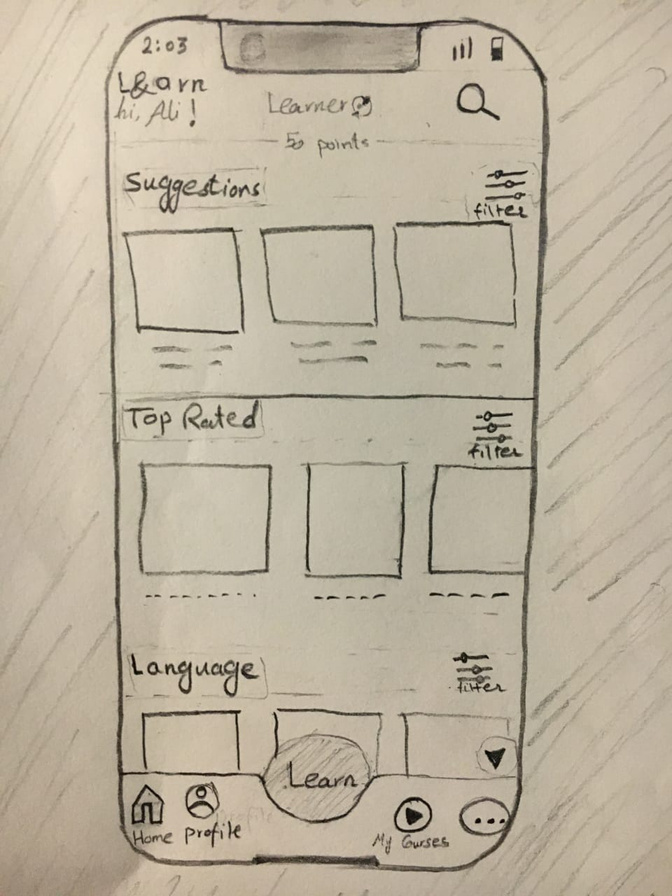 2:03
L&arn
hi, Ali!
Learner
50 points
Suggestions
filter
Top Rated
filter
Language
filter
Learn
Home
profile
My Curses